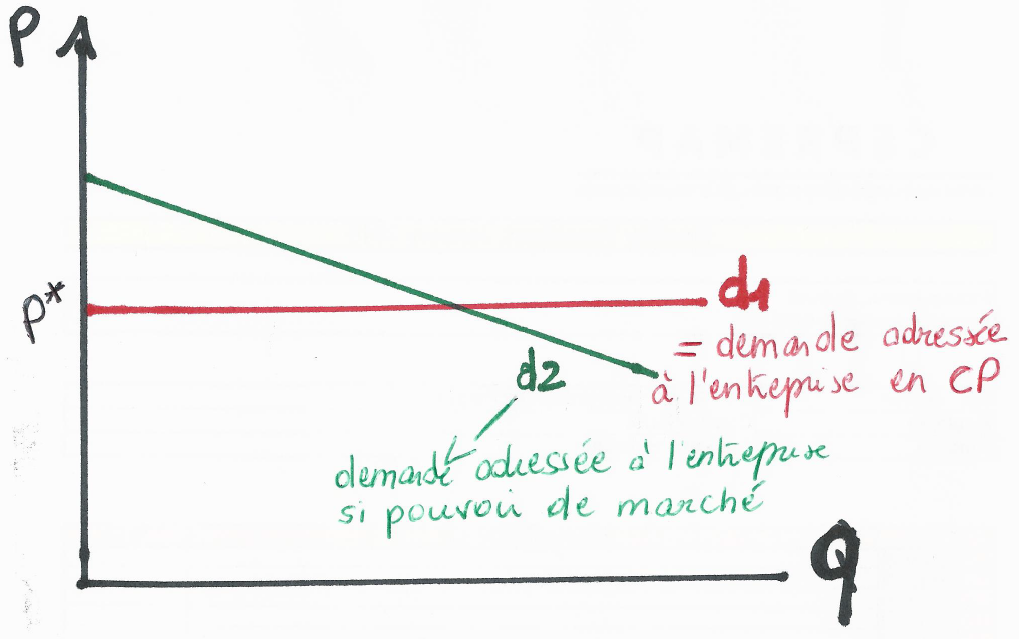 P
P*
d1
= demande adressée
à l'entreprise en CP
d2
demande adressée à l'entreprise
si pouvoir de marché
Q